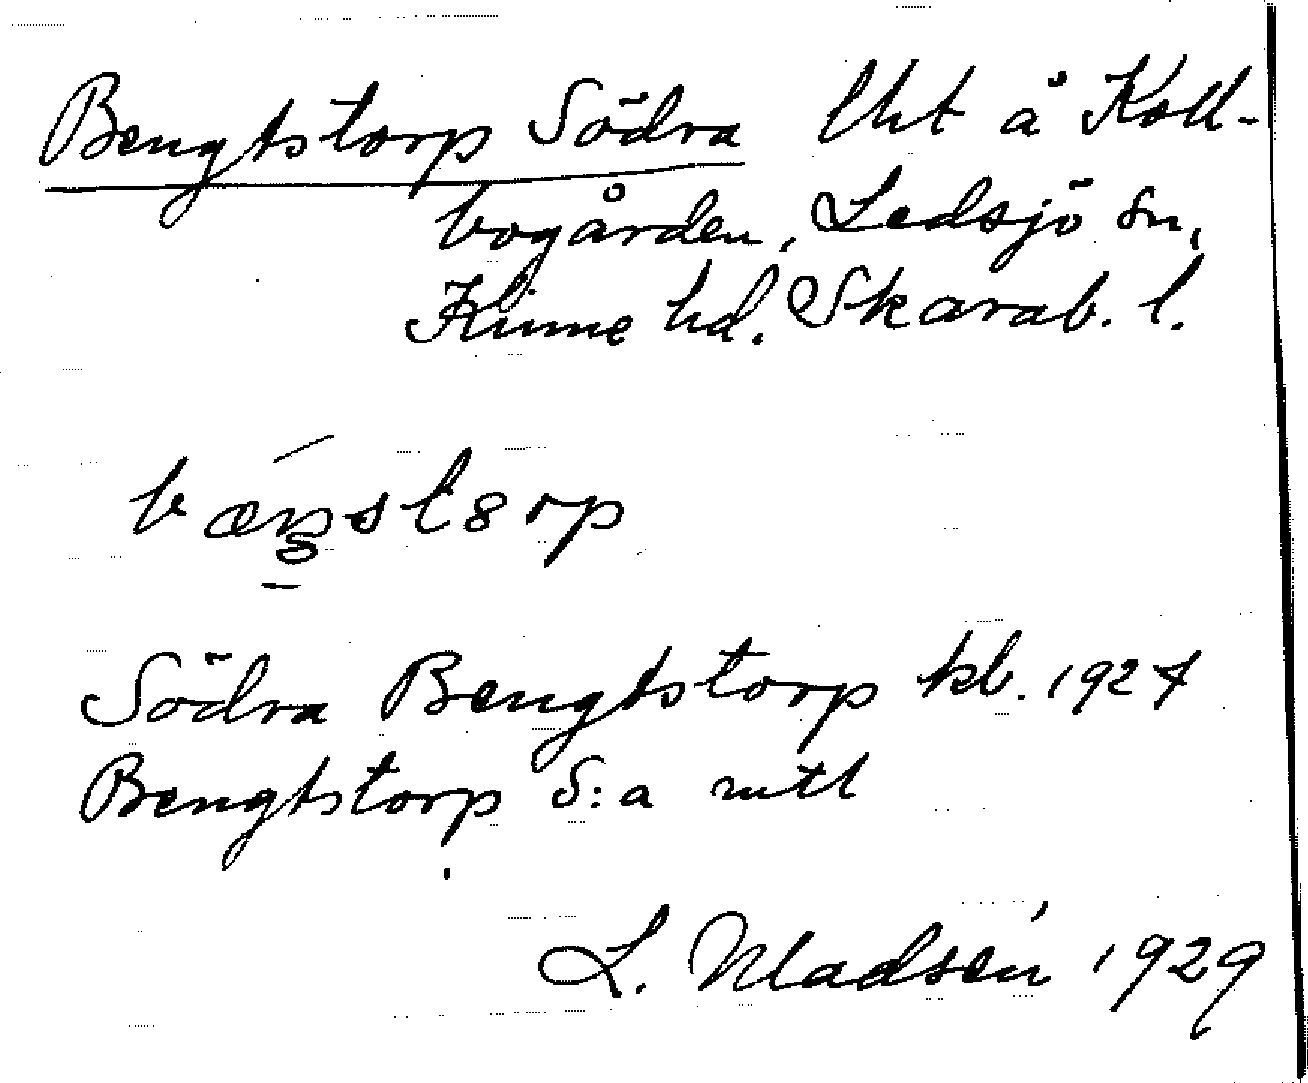 Bengtstorp Södra Utt å Koll-
bogården, Ledsjö sn,
Kinne hd. Skarab. l.
bæŋstorp
Södra Bengtstorp kb. 1927
Bengtstorp S:a mtl
L. Madsén 1929